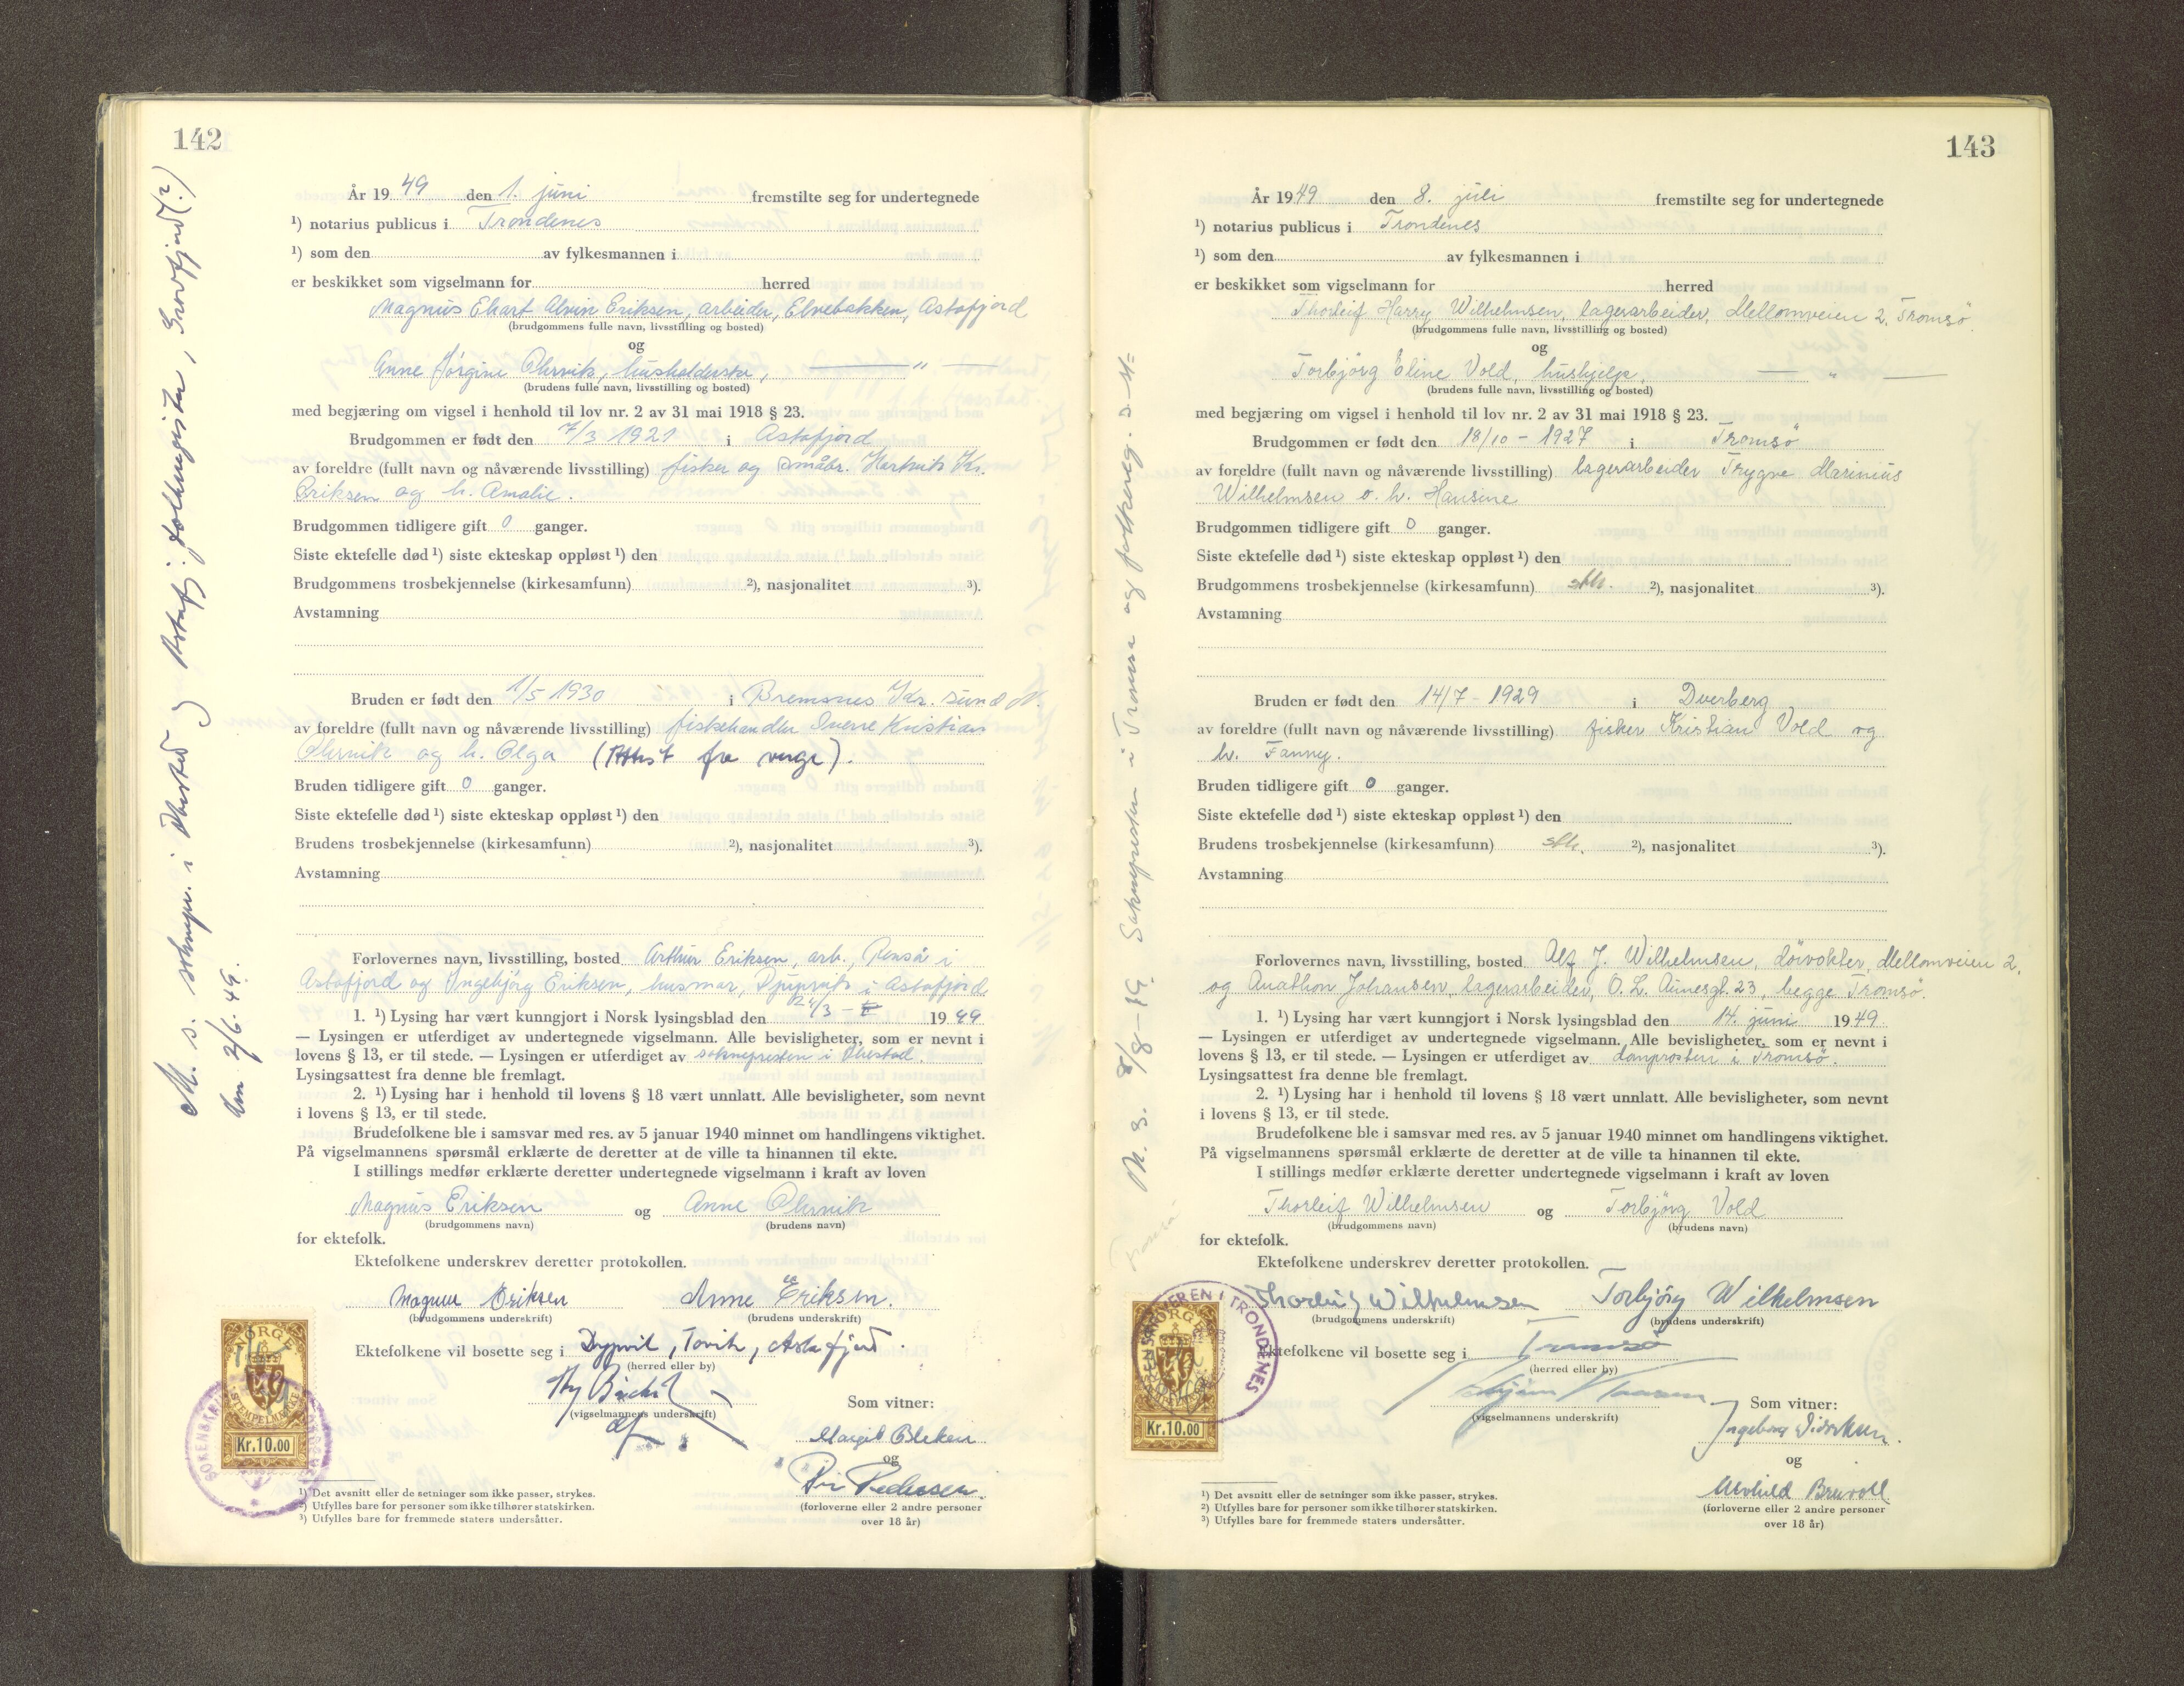 142
År 19 49 den 1. juni fremstilte seg for undertegnede
¹) notarius publicus i Trondenes
¹) som den av fylkesmannen i
er beskikket som vigselmann for herred
Magnus Ekart Alvin Eriksen, arbeider, Elvebakken, Astafjord
(brudgommens fulle navn, livsstilling og bosted)
og
Anne Jørgine Ohrvik, husholderske, — " —
(brudens fulle navn, livsstilling og bosted)
med begjæring om vigsel i henhold til lov nr. 2 av 31 mai 1918 § 23.
Brudgommen er født den 7/3 1921 i Astafjord
av foreldre (fullt navn og nåværende livsstilling) fisker og småbr. Hartvik Kr.
Eriksen og h. Amalie.
Brudgommen tidligere gift 0 ganger.
Siste ektefelle død ¹) siste ekteskap oppløst ¹) den
Brudgommens trosbekjennelse (kirkesamfunn) ²), nasjonalitet ³).
Avstamning
Bruden er født den 1/5 1930 i Bremsnes Kr. sund N.
av foreldre (fullt navn og nåværende livsstilling) fiskehandler Sverre Kristian
Ohrvik og h. Olga (Attest fra verge).
Bruden tidligere gift 0 ganger.
Siste ektefelle død ¹) siste ekteskap oppløst ¹) den
Brudens trosbekjennelse (kirkesamfunn) ²), nasjonalitet ³).
Avstamning
Forlovernes navn, livsstilling, bosted Arthur Eriksen, arb., Renså i
Astafjord og Ingebjørg Eriksen, husmor, Djupvik i Astafjord
1. ¹) Lysing har vært kunngjort i Norsk lysingsblad den 24/3 – 19 49
— Lysingen er utferdiget av undertegnede vigselmann. Alle bevisligheter, som er nevnt i
lovens § 13, er til stede. — Lysingen er utferdiget av soknepresten i Ibestad.
Lysingsattest fra denne ble fremlagt.
2. ¹) Lysing har i henhold til lovens § 18 vært unnlatt. Alle bevisligheter, som nevnt
i lovens § 13, er til stede.
Brudefolkene ble i samsvar med res. av 5 januar 1940 minnet om handlingens viktighet.
På vigselmannens spørsmål erklærte de deretter at de ville ta hinannen til ekte.
I stillings medfør erklærte deretter undertegnede vigselmann i kraft av loven
Magnus Eriksen og Anne Ohrvik
(brudgommens navn) (brudens navn)
for ektefolk.
Ektefolkene underskrev deretter protokollen.
Magnus Eriksen Anne Eriksen.
(brudgommens underskrift) (brudens underskrift)
Ektefolkene vil bosette seg i Dypvik, Tovik, Astafjord.
(herred eller by)
(vigselmannens underskrift) Som vitner:
Margit Bleken
og
Pedersen
(forloverne eller 2 andre personer
over 18 år)
¹) Det avsnitt eller de setninger som ikke passer, strykes.
²) Utfylles bare for personer som ikke tilhører statskirken.
³) Utfylles bare for fremmede staters undersåtter.
M. s. soknepr. i Ibestad og Astafj. folkeregister, Grovfjord (2)
2/6. 49.
NORGE
STEMPELMERKE
Kr.10.00
143
År 19 49 den 8. juli fremstilte seg for undertegnede
¹) notarius publicus i Trondenes
¹) som den av fylkesmannen i
er beskikket som vigselmann for herred
Thorleif Harry Wilhelmsen, lagerarbeider, Mellomveien 2, Tromsö.
(brudgommens fulle navn, livsstilling og bosted)
og
Torbjörg Eline Vold, hushjelp, — " —
(brudens fulle navn, livsstilling og bosted)
med begjæring om vigsel i henhold til lov nr. 2 av 31 mai 1918 § 23.
Brudgommen er født den 18/10 – 1927 i Tromsö
av foreldre (fullt navn og nåværende livsstilling) lagerarbeider Trygve Marinius
Wilhelmsen o. h. Hansine
Brudgommen tidligere gift 0 ganger.
Siste ektefelle død ¹) siste ekteskap oppløst ¹) den
Brudgommens trosbekjennelse (kirkesamfunn) stk. ²), nasjonalitet ³).
Avstamning
Bruden er født den 14/7 – 1929 i Dverberg
av foreldre (fullt navn og nåværende livsstilling) fisker Kristian Vold og
h. Fanny.
Bruden tidligere gift 0 ganger.
Siste ektefelle død ¹) siste ekteskap oppløst ¹) den
Brudens trosbekjennelse (kirkesamfunn) stk. ²), nasjonalitet ³).
Avstamning
Forlovernes navn, livsstilling, bosted Alf J. Wilhelmsen, dörvokter, Mellomveien 2,
og Anathon Johansen, lagerarbeider, O. L. Aunesgt. 23, begge Tromsö.
1. ¹) Lysing har vært kunngjort i Norsk lysingsblad den 14. juni 19 49
— Lysingen er utferdiget av undertegnede vigselmann. Alle bevisligheter, som er nevnt i
lovens § 13, er til stede. — Lysingen er utferdiget av domprosten i Tromsö.
Lysingsattest fra denne ble fremlagt.
2. ¹) Lysing har i henhold til lovens § 18 vært unnlatt. Alle bevisligheter, som nevnt
i lovens § 13, er til stede.
Brudefolkene ble i samsvar med res. av 5 januar 1940 minnet om handlingens viktighet.
På vigselmannens spørsmål erklærte de deretter at de ville ta hinannen til ekte.
I stillings medfør erklærte deretter undertegnede vigselmann i kraft av loven
Thorleif Wilhelmsen og Torbjörg Vold
(brudgommens navn) (brudens navn)
for ektefolk.
Ektefolkene underskrev deretter protokollen.
Thorleif Wilhelmsen Torbjörg Wilhelmsen
(brudgommens underskrift) (brudens underskrift)
Ektefolkene vil bosette seg i Tromsö
(herred eller by)
(vigselmannens underskrift) Som vitner:
Ingeborg
og
Alvhild Bruvoll
(forloverne eller 2 andre personer
over 18 år)
¹) Det avsnitt eller de setninger som ikke passer, strykes.
²) Utfylles bare for personer som ikke tilhører statskirken.
³) Utfylles bare for fremmede staters undersåtter.
M. s. 8/8–19. Soknepresten i Tromsø og folkereg. s. st=
Tromsø
SORENSKRIVEREN I TRONDENES
NORGE
Kr.10.00